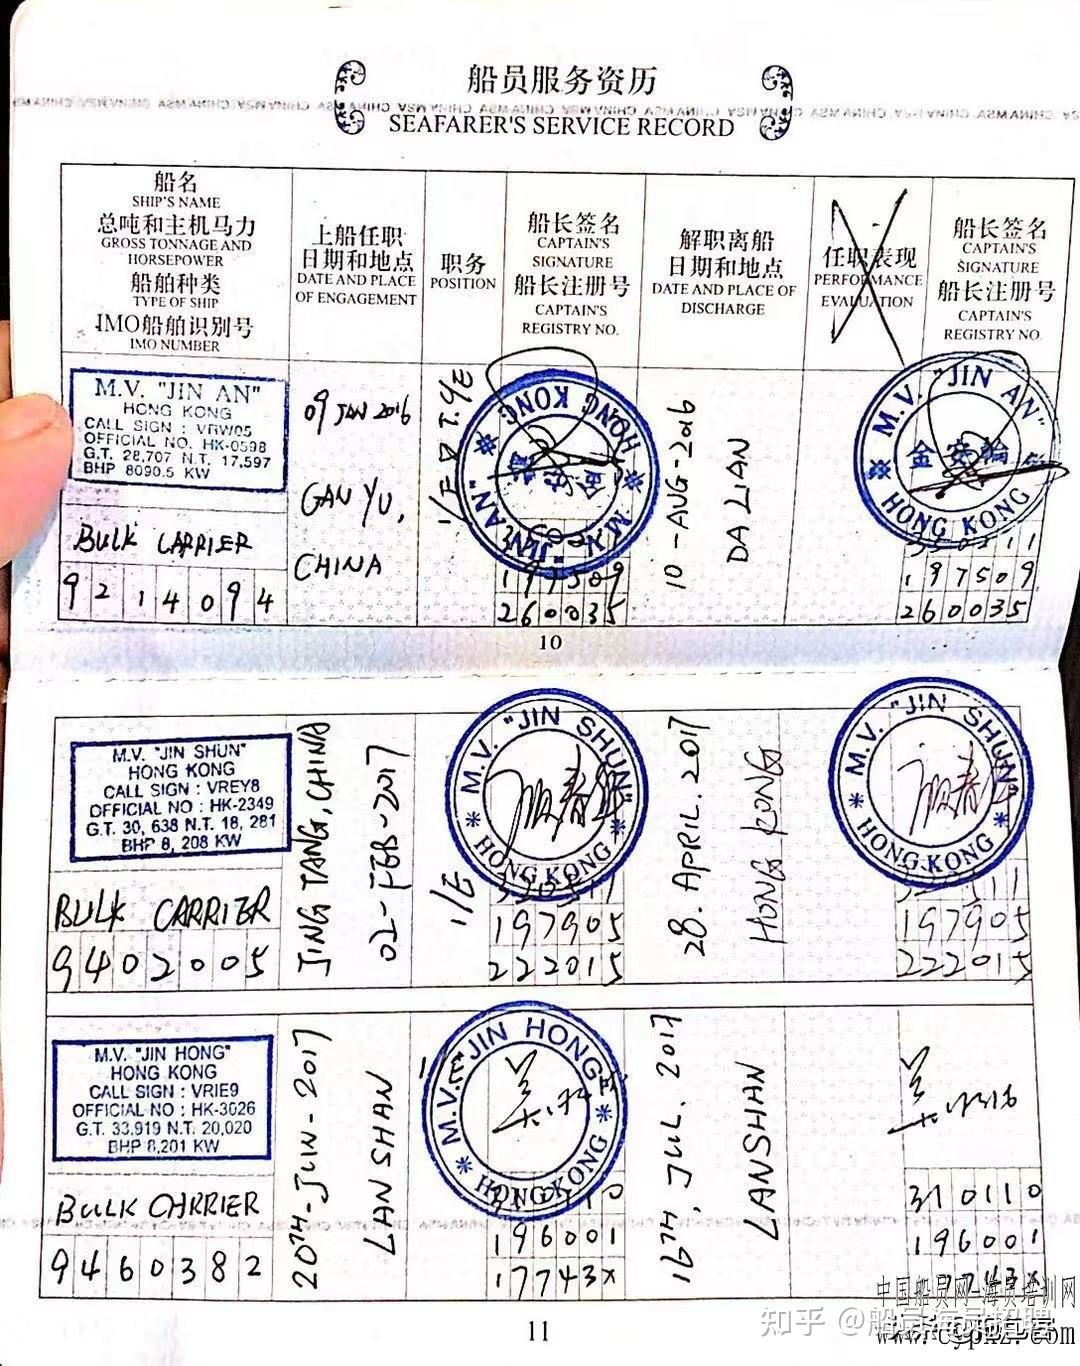 船员服务资历
SEAFARER'S SERVICE RECORD
船名
SHIP'S NAME
总吨和主机马力
GROSS TONNAGE AND
HORSEPOWER
船舶种类
TYPE OF SHIP
IMO船舶识别号
IMO NUMBER
上船任职
日期和地点
DATE AND PLACE
OF ENGAGEMENT
职务
POSITION
船长签名
CAPTAIN'S
SIGNATURE
船长注册号
CAPTAIN'S
REGISTRY NO.
解职离船
日期和地点
DATE AND PLACE OF
DISCHARGE
任职表现
PERFORMANCE
EVALUATION
船长签名
CAPTAIN'S
SIGNATURE
船长注册号
CAPTAIN'S
REGISTRY NO.
M.V. "JIN AN"
HONG KONG
CALL SIGN : VRWO5
OFFICIAL NO. HK-0598
G.T. 28,707 N.T. 17,597
BHP 8090.5 KW
BULK CARRIER
9214094
09 JAN 2016
GAN YU,
CHINA
M.V. "JIN AN"
HONG KONG
197509
260035
10-AUG-2016
DALIAN
M.V. "JIN AN"
金安轮
HONG KONG
197509
260035
10
M.V. "JIN SHUN"
HONG KONG
CALL SIGN : VREY8
OFFICIAL NO : HK-2349
G.T. 30, 638 N.T. 18, 281
BHP 8, 208 KW
BULK CARRIER
9402005
JING TANG, CHINA
02-FEB-2017
1/E
M.V. "JIN SHUN"
HONG KONG
197905
222015
28. APRIL. 2017
HONG KONG
M.V. "JIN SHUN"
HONG KONG
197905
222015
M.V. "JIN HONG"
HONG KONG
CALL SIGN : VRIE9
OFFICIAL NO : HK-3026
G.T. 33,919 N.T. 20,020
BHP 8,201 KW
BULK CARRIER
9460382
20TH-JUN-2017
LANSHAN
M.V. "JIN HONG"
HONG KONG
310110
196001
17743X
16TH, JUL. 2017
LANSHAN
310110
196001
11
中国船员网-海员培训网
知乎 @船员海员招聘
www.cyphz.com